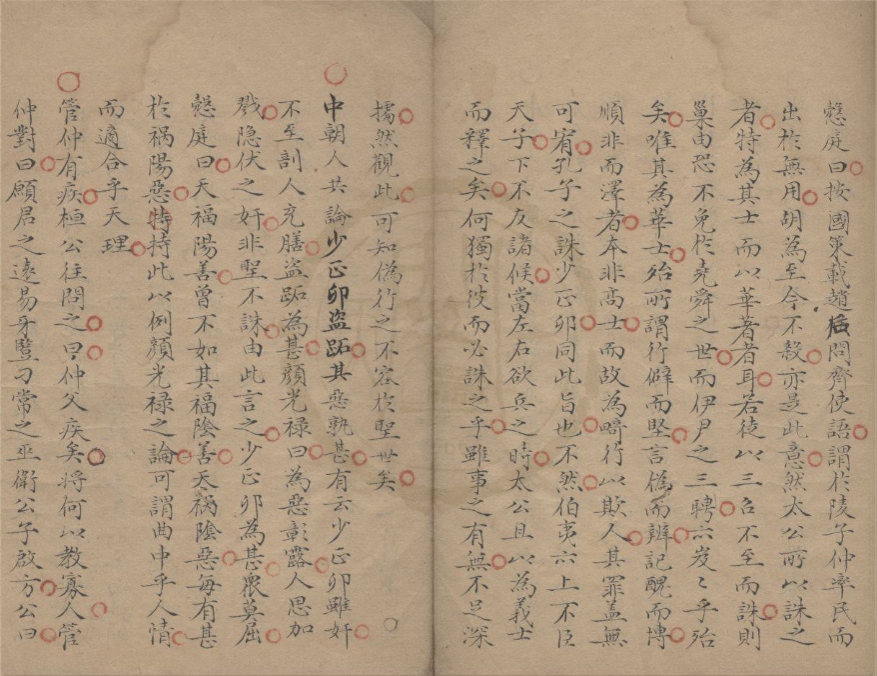 慤庭曰按國策載趙后問齊使語謂於陵子仲率民而
出於無用胡為至今不殺亦是此意然太公所以誅之
者特為其士而以華著者耳若徒以三召不至而誅則
巢由恐不免於堯舜之世而伊尹之三聘亦岌〻乎殆
矣唯其為華士殆所謂行僻而堅言偽而辨記醜而博
順非而澤者本非高士而故為嘐行以欺人其罪盖無
可宥孔子之誅少正卯同此旨也不然伯夷亦上不臣
天子下不友諸候當左右欲兵之時太公且以為義士
而釋之矣何獨於彼而必誅之乎雖事之有無不足深
據然觀此可知偽行之不容於聖世矣
中朝人共論少正卯盜跖其惡孰甚有云少正卯雖奸
不至剖人充膳盜跖為甚顏光禄曰為惡彰露人思加
戮隐伏之奸非聖不誅由此言之少正卯為甚衆莫屈
慤庭曰天福陽善曾不如其福陰善天禍陰惡每有甚
於禍陽惡特持此以例顏光禄之論可謂曲中乎人情
而適合乎天理
管仲有疾桓公往問之曰仲父疾矣將何以教寡人管
仲對曰願君之遠易牙豎刁常之巫衛公子啟方公曰